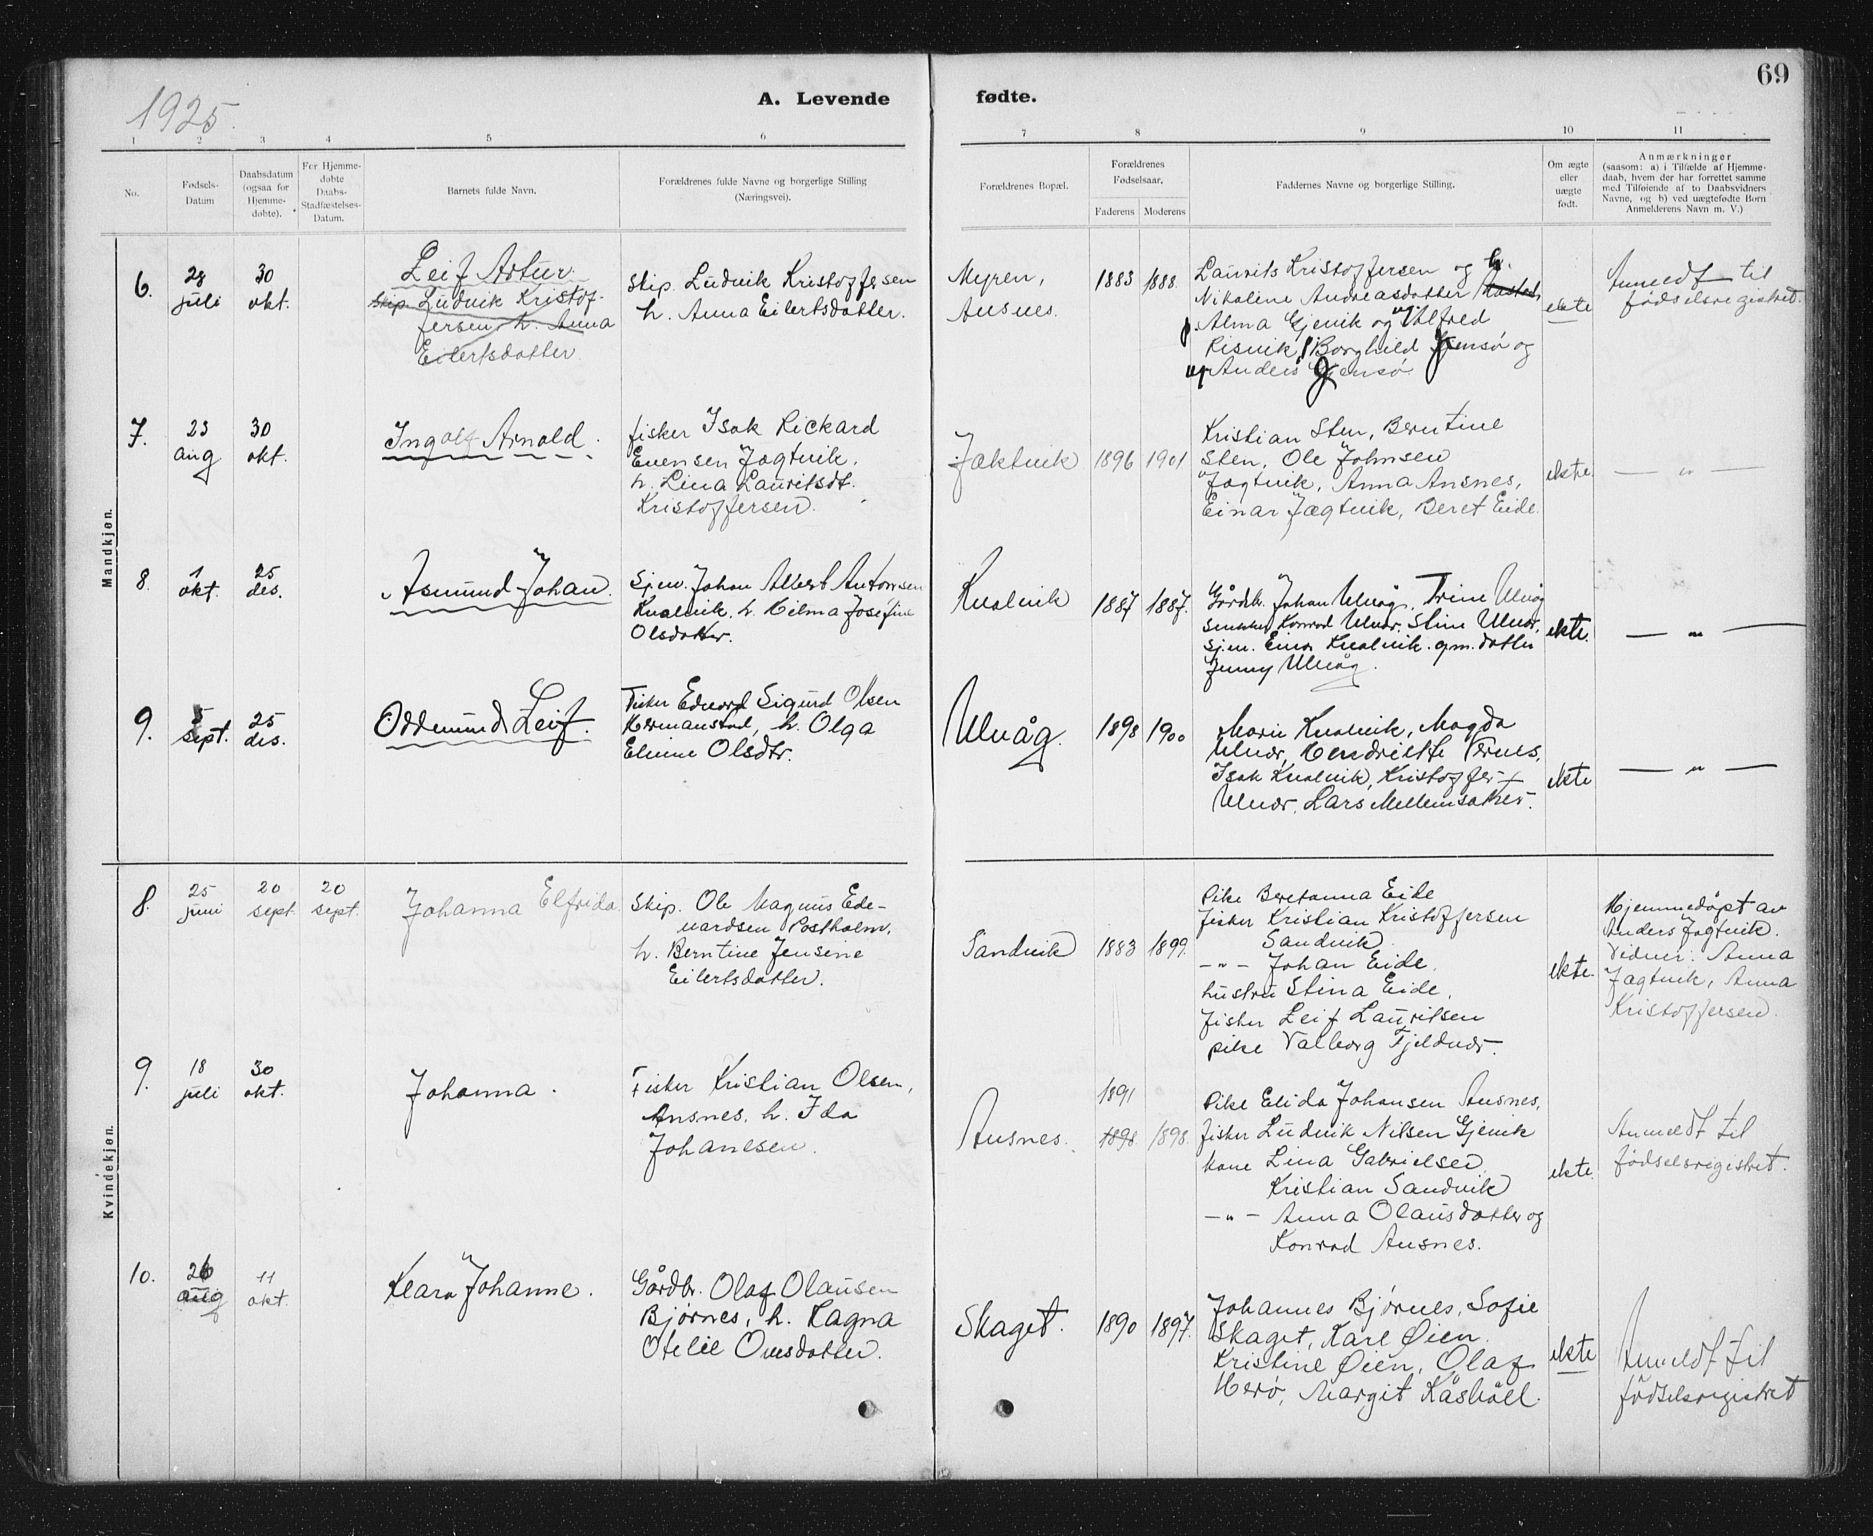 1925.
A. Levende
fødte.
69
1 2 3 4 5 6 7 8 9 10 11
No.
Fødsels-
Datum
Daabsdatum
(ogsaa for
Hjemme-
døbte).
For Hjemme-
døbte
Daabs-
Stadfæstelses-
Datum.
Barnets fulde Navn.
Forældrenes fulde Navne og borgerlige Stilling
(Næringsvei).
Forældrenes Bopæl.
Forældrenes
Fødselsaar.
Faderens Moderens
Faddernes Navne og borgerlige Stilling.
Om ægte
eller
uægte
født.
Anmærkninger
(saasom: a) i Tilfælde af Hjemme-
daab, hvem der har forrettet samme
med Tilføiende af to Daabsvidners
Navne, og b) ved uægtefødte Børn
Anmelderens Navn m. V.)
Mandkjøn.
6.
28
juli
30
okt.
Leif Artur.
skip. Ludvik Kristof-
fersen, h. Anna
Eilertsdotter
skip. Ludvik Kristoffersen
h. Anna Eilertsdotter.
Myren,
Ansnes.
1883 1888.
Laurits Kristoffersen og h.
Nikoline Andreasdotter
Alma Gjevik og Alfred
Risvik, Borghild Jensø og
Anders Jensø
ekte
Anmeldt til
fødselsregistret.
7.
23
aug
30
okt.
Ingolf Arnold.
fisker Isak Rickard
Evensen Jøgtvik.
h. Lina Lauritsdt.
Kristoffersen.
Jæktvik
1896 1901
Kristian Sten, Berntine
Sten, Ole Johnsen
Jøgtvik, Anna Ansnes,
Einar Jægtvik, Beret Eide.
ekte.
— " —
8.
1
okt.
25
des.
Asmund Johan.
Sjem. Johan Albert Antonsen
Kvalvik, h. Hilma Josefine
Olsdotter.
Kvalvik
1887 1887.
Gårdbr. Johan Ulvåg, Trine Ulvåg
Konrad Ulvør, Stine Ulvør,
Sjem. Einar Kvalvik. gm. dotter
Jenny Ulvåg.
ekte.
— " —
9.
5
sept.
25
des.
Oddmund Leif.
Fisker Edvard Sigurd Olsen
Hermanstad, h. Olga
Elinne Olsdtr.
Ulvåg.
1898 1900
Marie Kvalvik, Magda
Ulvør, Hendrikke Vernes,
Isak Kvalvik, Kristoffer
Ulvør, Lars Mellemsæter.
ekte
— " —
Kvindekjøn.
8.
25
juni
20
sept.
20
sept.
Johanna Elfrida
skip. Ole Magnus Ede-
vardsen Postholm.
h. Berntine Jensine
Eilertsdotter.
Sandvik
1883 1899.
Pike Beretanna Eide
fisker Kristian Kristoffersen
Sandvik
— " — Johan Eide.
hustru Stina Eide,
fisker Leif Lauritsen
pike Valborg Fjeldvær.
ekte.
Hjemmedøpt av
Anders Jøgtvik.
Vidner: Anna
Jægtvik, Anna
Kristoffersen.
9.
18
juli
30
okt.
Johanna.
Fisker Kristian Olsen,
Ansnes, h. Ida
Johansen.
Ansnes.
1891
1898 1898.
Pike Elida Johansen Ansnes,
fisker Ludvik Nilsen Gjevik
kone Lina Gabrielsen
Kristian Sandvik
— " — Anna Olausdotter og
Konrad Ansnes.
ekte.
Anmeldt til
fødselsregistret.
10.
26
aug
11
okt.
Klara Johanne.
Gårdbr. Olaf Olausen
Bjørnes, h. Ragna
Otelie Ovesdotter.
Skaget.
1890 1897.
Johannes Bjørnes, Sofie
Skaget, Karl Øien.
Kristine Øien, Olaf
Herø, Margit Kåsholl.
ekte
Anmeldt til
fødselsregistret